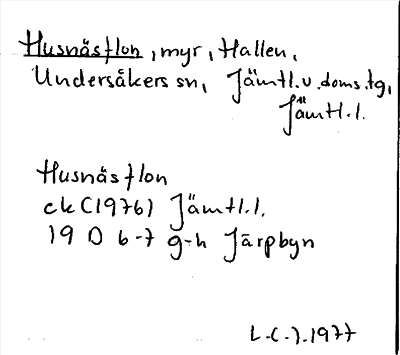 Husnäsflon, myr, Hallen,
Undersåkers sn, Jämtl.v.doms.tg,
Jämtl.l.
Husnäsflon
ek (1976) Jämtl.l.
19 D 6-7 g-h Järpbyn
L.C.J. 1977